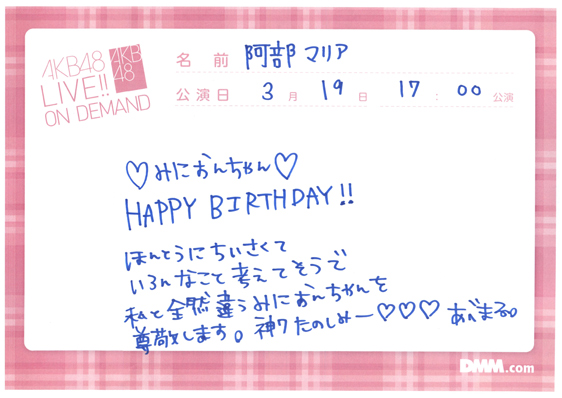 AKB48
LIVE!!
ON DEMAND
AKB
48
名前 阿部 マリア
公演日 3月 19日 17:00公演
♡みにおんちゃん♡
HAPPY BIRTHDAY!!
ほんとうにちいさくて
いろんなこと考えてそうで
私と全然違うみにおんちゃんを
尊敬します。神7たのしめー♡♡♡ あべまる。
DMM.com